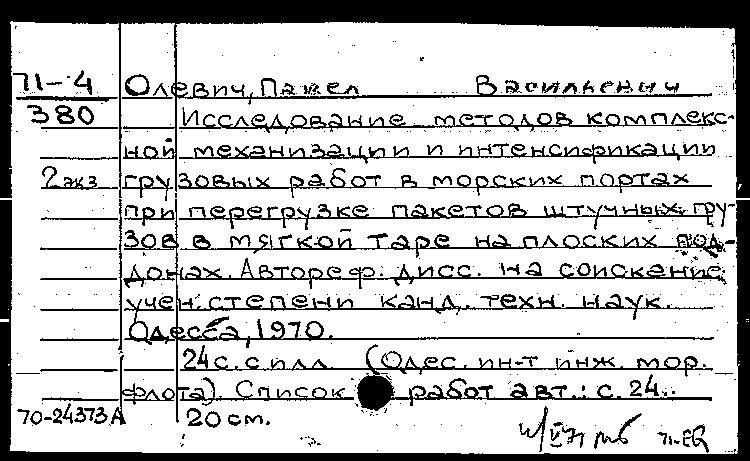 71-4 Олевич, Павел Васильевич
380 Исследование методов комплекс-
ной механизации и интенсификации
2 экз грузовых работ в морских портах
при перегрузке пакетов штучных гру-
зов в мягкой таре на плоских под-
донах. Автореф. дисс. на соискание
учен. степени канд. техн. наук.
Одесса, 1970.
24 с. с илл. (Одес. ин-т инж. мор.
флота). Список работ авт.: с. 24.
70-24373А 20 см.